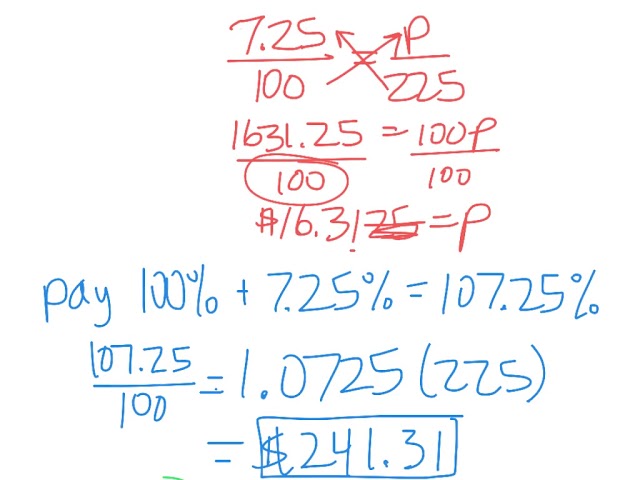 7.25/100 = P/225
1631.25/100 = 100P/100
$16.3125 = P
pay 100% + 7.25% = 107.25%
107.25/100 = 1.0725(225)
= $241.31